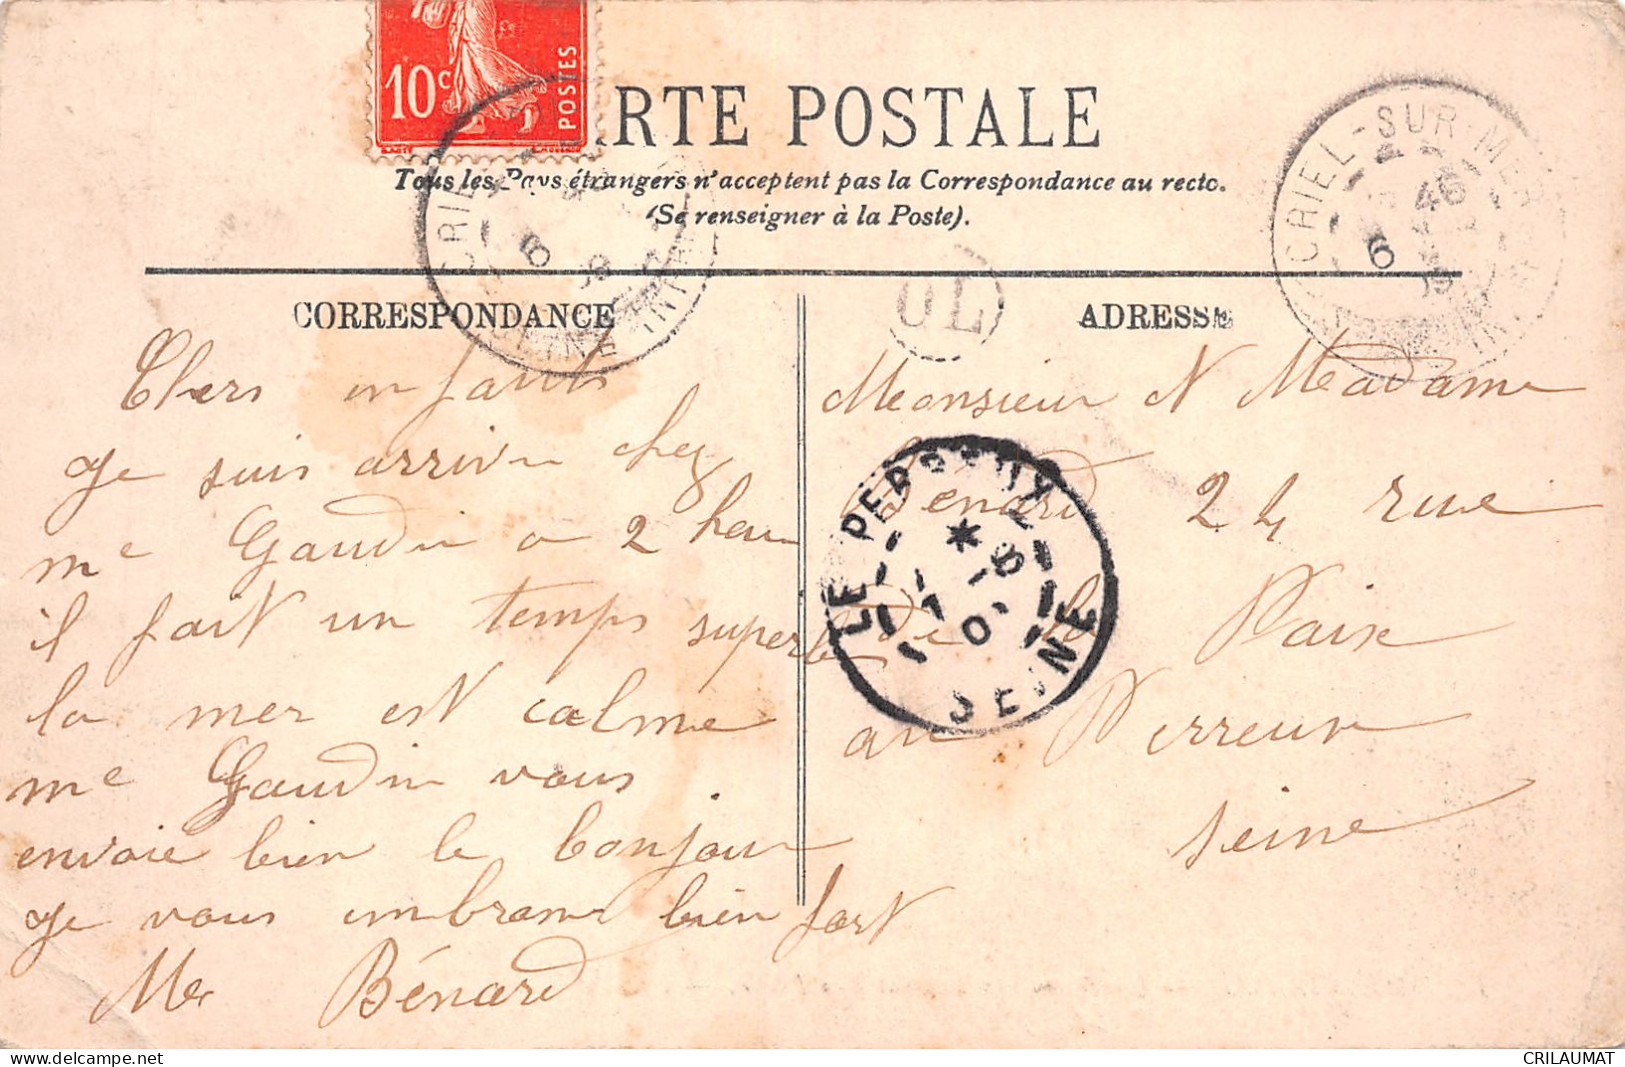 10c
POSTES
CARTE POSTALE
Tous les Pays étrangers n'acceptent pas la Correspondance au recto.
(Se renseigner à la Poste).
CRIEL-SUR-MER
6
CRIEL-SUR-MER
46
6
SEINE INF
OL
CORRESPONDANCE
Chers enfants
Je suis arrivé chez
me Gaudin a 2 heu
il fait un temps superbe
la mer est calme
me Gaudin vous
envoie bien le bonjour
Je vous embrasse bien fort
Me Bénard
ADRESSE
Monsieur et Madame
Benard 24 rue
De la Paix
au Perreux
seine
LE PERREUX
SEINE
delcampe.net
CRILAUMAT